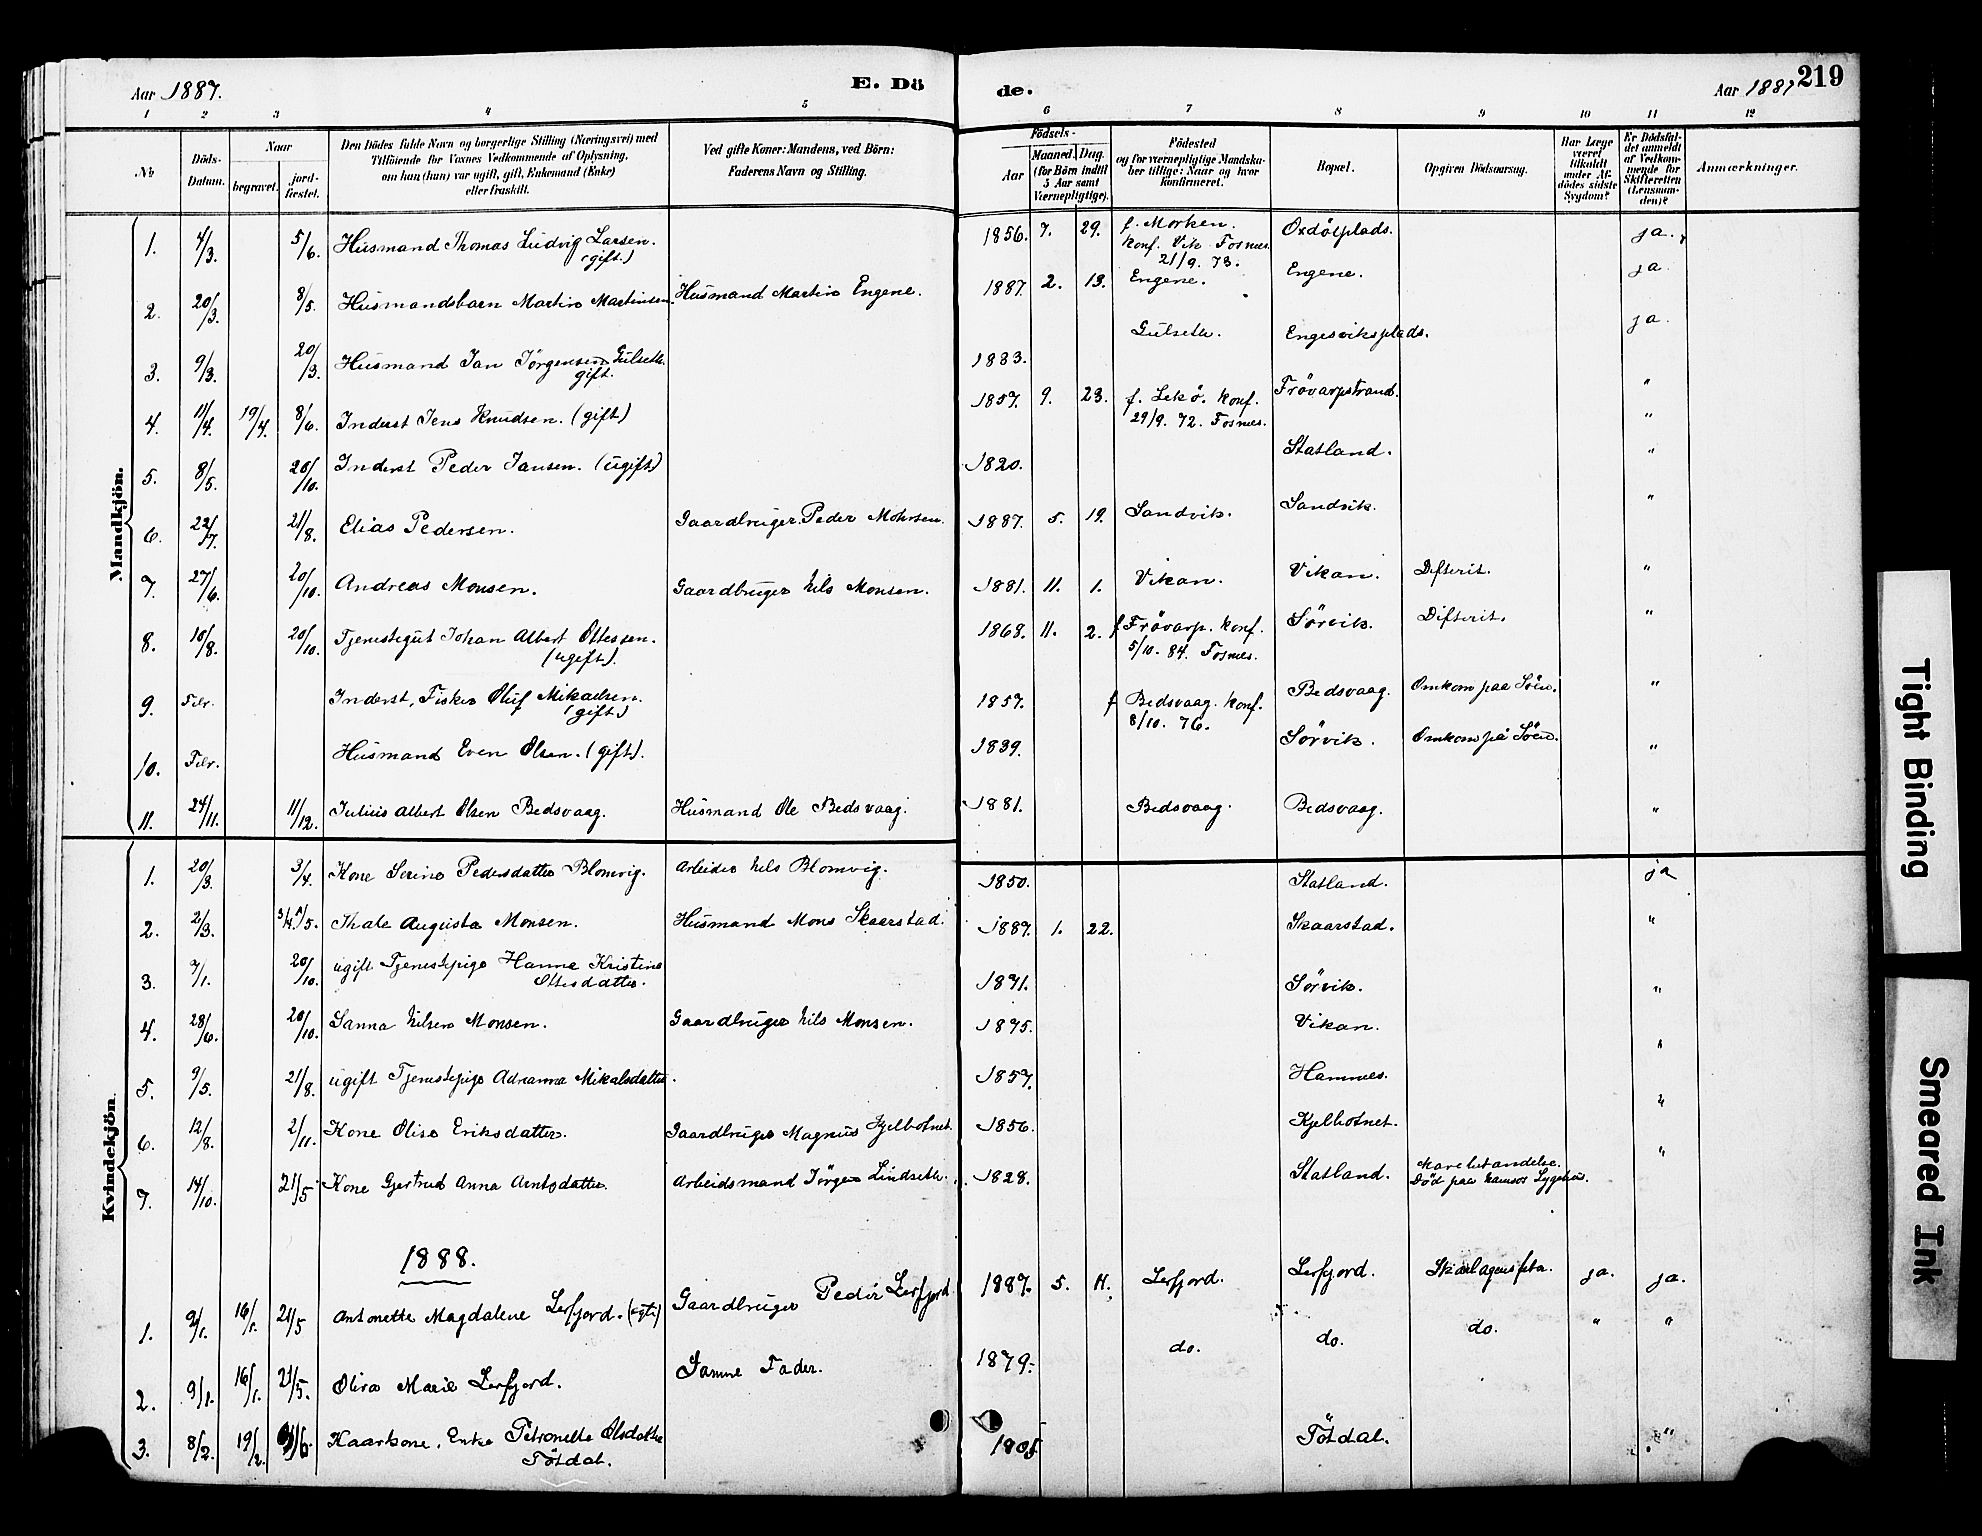 Aar 1887. E. Dö
1 2 3 4 5
No
Döds-Datum.
Naar
begravet.
jord-fæstet.
Den Dödes fulde Navn og borgerlige Stilling (Næringsvei) med
Tilföiende for Voxnes Vedkommende af Oplysning,
om han (hun) var ugift, gift, Enkemand (Enke)
eller fraskilt.
Ved gifte Koner: Mandens, ved Börn:
Faderens Navn og Stilling.
Mandkjön.
1. 4/3. 5/6. Husmand Thomas Ludvig Larsen.
(gift.)
2. 20/3. 8/5. Husmandsbarn Martin Martinsen. Husmand Martin Engene.
3. 9/3. 20/3. Husmand Jan Jörgensen Gulseth.
gift.
4. 11/4. 19/4. 8/6. Inderst Jens Knudsen. (gift)
5. 8/5. 20/10. Inderst Peder Jansen. (ugift)
6. 22/7. 21/8. Elias Pedersen. Gaardbruger Peder Mohrsen.
7. 27/6. 20/10. Andreas Monsen. Gaardbruger Nils Monsen.
8. 10/8. 20/10. Tjenestegut Johan Albert Ottessen.
(ugift).
9. Febr. Inderst, Fisker Oluf Mikaelsen.
(gift)
10. Febr. Husmand Even Olsen. (gift).
11. 24/11. 11/12. Julius Albert Olsen Bedsvaag. Husmand Ole Bedsvaag.
Kvindekjön.
1. 20/3. 3/4. Kone Serine Pedersdatter Blomvig. Arbeider Nils Blomvig.
2. 2/3. Thale Augusta Monsen. Husmand Mons Skaarstad.
3. 7/1. 20/10. ugift Tjenestepige Hanna Kristine
Ottesdatter.
4. 28/6. 20/10. Sanna Nilsen Monsen. Gaardbruger Nils Monsen.
5. 9/5. 21/8. ugift Tjenestepige Adrianna Mikalsdatter.
6. 12/8. 2/11. Kone Olise Eriksdatter. Gaardbruger Magnus Kjelbotnet.
7. 14/10. 21/5 Kone Gjertrud Anna Arntsdatter. Arbeidsmand Jörgen Lindseth.
1888.
1. 9/1. 16/1. 21/5 Antonette Magdalene Lerfjord. (egte) Gaardbruger Peder Lerfjord
2. 9/1. 16/1. 21/5. Oliva Marie Lerfjord. Samme Fader.
3. 8/2. 19/2. Kaarkone, Enke Petronelle Olsdatter
Tötdal.
de. Aar 1887 219
6 7 8 9 10 11 12
Födsels-
Aar
Maaned. Dag.
(for Börn indtil
5 Aar samt
Værnepligtige).
Födested
og for værnepligtige Mandska-
ber tillige: Naar og hvor
konfirmeret.
Bopæl.
Opgiven Dödsaarsag.
Har Læge
været
tilkaldt
under Af-
dödes sidste
Sygdom?
Er Dödsfal-
det anmeldt
af Vedkom-
mende for
Skifteretten
(Lensman-
den)?
Anmærkninger.
1856. 7. 29. f. Morken. Oxdölplads. ja.
Konf. Vik Fosnes
21/9. 73.
1887. 2. 13. Engene. Engene. ja.
1833. Gulseth. Engesviksplads. ja.
1857. 9. 23. f. Lekö. Konf. Frövarpstrand. "
29/9. 72. Fosnes. "
1820. Statland. "
1887. 5. 19. Sandvik. Sandvik. "
1881. 11. 1. Vikan. Vikan. Difterit. "
1868. 11. 2. f Frövarp. Konf. Sörvik. Difterit. "
5/10. 84. Fosnes.
1857. f Bedsvaag. Konf. Bedsvaag. Omkom paa Söen. "
8/10. 76.
1839. Sörvik. Omkom på Söen. "
1881. Bedsvaag. Bedsvaag. "
1850. Statland. ja
1887. 1. 22. Skaarstad. "
1871. Sörvik. "
1875. Vikan. "
1857. Hammes. "
1856. Kjelbotnet. "
1828. Statland. "
Död paa Namsos Sygehus.
1887. 5. 11. Lerfjord. Lerfjord. Skarlagensfeber. ja. ja.
1879. do. do. do. " "
1805 Tötdal. "
Tight Binding
Smeared Ink